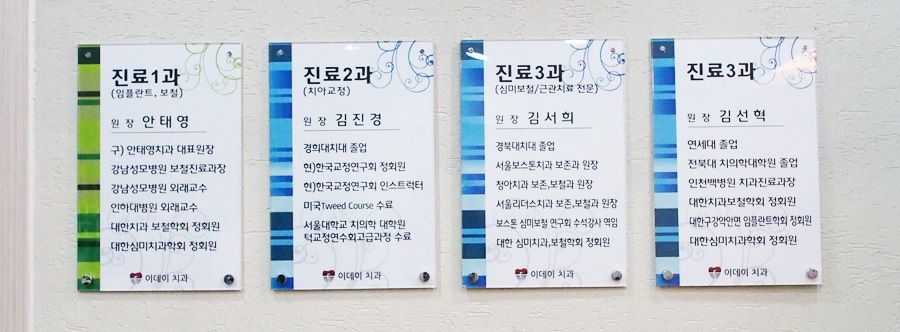 진료1과
(임플란트, 보철)
원 장 안 태 영
구) 안태영치과 대표원장
강남성모병원 보철진료과장
강남성모병원 외래교수
인하대병원 외래교수
대한치과 보철학회 정회원
대한심미치과학회 정회원
이데이 치과
진료2과
(치아교정)
원 장 김 진 경
경희대치대 졸업
현)한국교정연구회 정회원
현)한국교정연구회 인스트럭터
미국Tweed Course 수료
서울대학교 치의학 대학원
턱교정연수회고급과정 수료
이데이 치과
진료3과
(심미보철/근관치료 전문)
원 장 김 서 희
경북대치대 졸업
서울보스톤치과 보존과 원장
청아치과 보존,보철과 원장
서울리더스치과 보존,보철과 원장
보스톤 심미보철 연구회 수석강사 역임
대한 심미치과,보철학회 정회원
이데이 치과
진료3과
원 장 김 선 혁
연세대 졸업
전북대 치의학대학원 졸업
인천백병원 치과진료과장
대한치과보철학회 정회원
대한구강악안면 임플란트학회 정회원
대한심미치과학회 정회원
이데이 치과